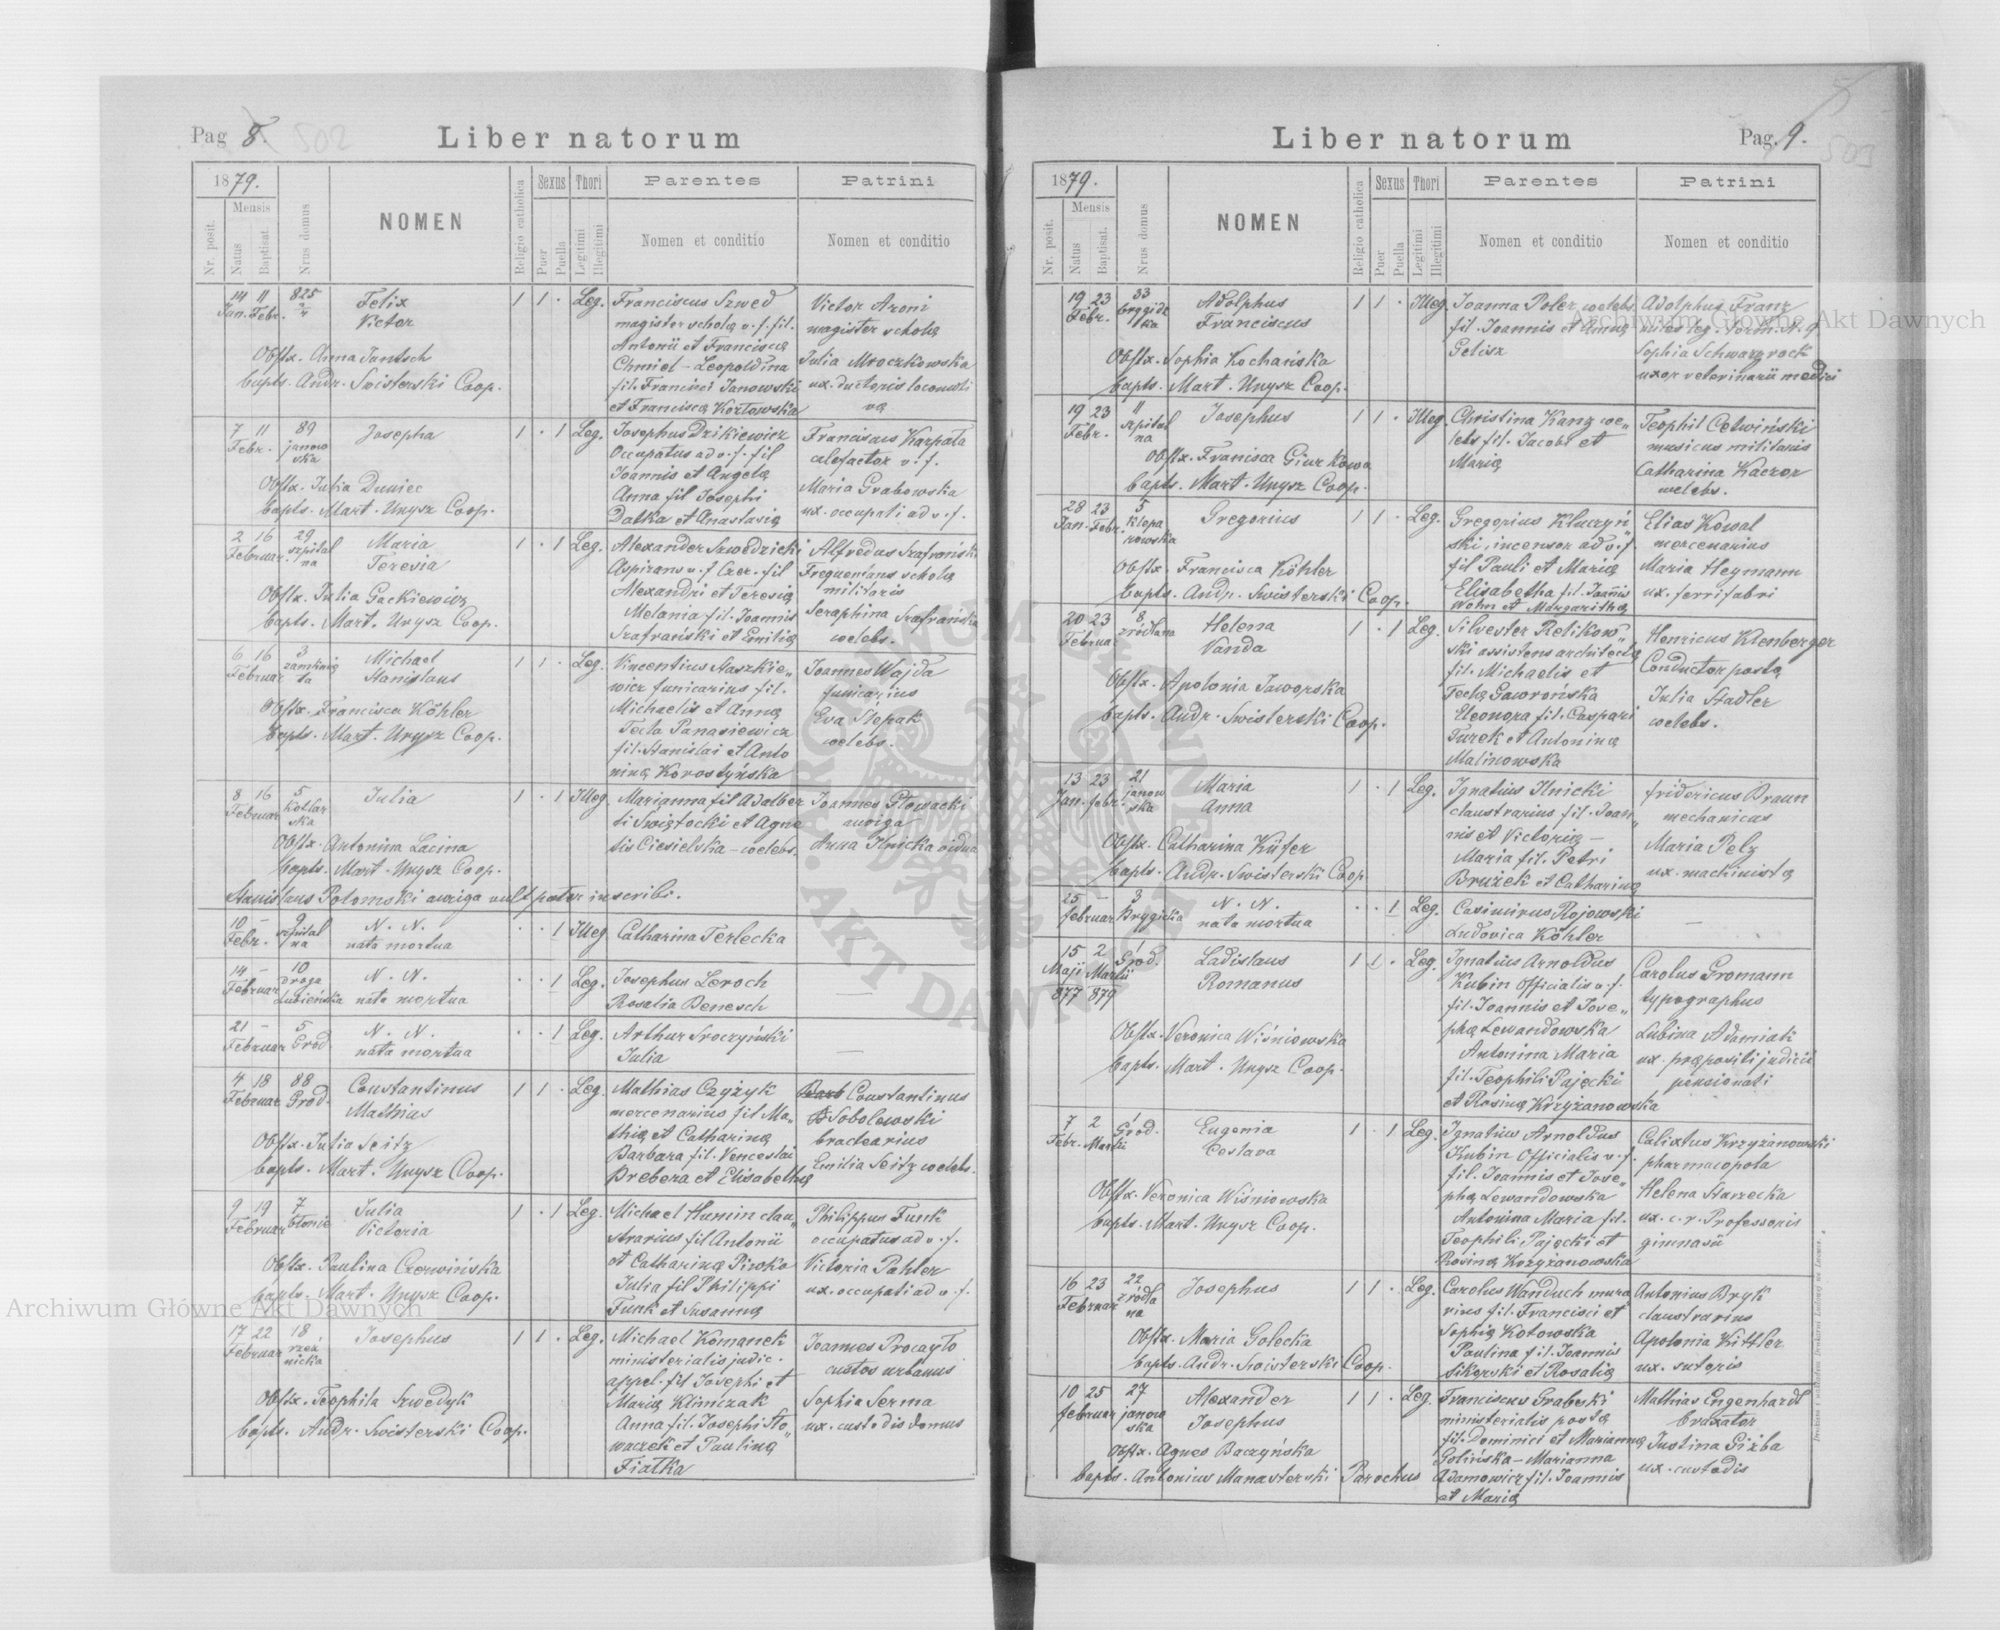 Pag 8.
502
Liber natorum
1879.
Mensis
Nr. posit.
Natus
Baptisat.
Nrus domus
NOMEN
Religio catholica
Sexus
Puer
Puella
Thori
Legitimi
Illegitimi
Parentes
Nomen et conditio
Patrini
Nomen et conditio
14 11 825 Felix 1 1 · Leg. Franciscus Szwed Victor Aroni
Jan. Febr. Victor magister scholę v. f. fil. magister scholę
Obstx. Anna Jantsch Antonii et Francisca Julia Mroczkowska
bapts. Andr. Swisterski Coop. Chmiel – Leopoldina ux. ductoris locomoti
fil. Francisci Janowski vę
et Francisca Kozłowska
7 11 89 Josepha 1 · 1 Leg. Josephus Dzikiewicz Franciscus Karpała
Febr. janow Occupatus ad v. f. fil calefactor v. f.
ska Joannis et Angelę Maria Grabowska
Obstx. Julia Duniec Anna fil Josephi ux. occupati ad v. f.
bapts. Mart. Unysz Coop. Datka et Anastasię
2 16 29 Maria 1 · 1 Leg. Alexander Szwedzicki Alfredus Szafrański
Februar. szpital Teresia Aspirans v. f. fil Frequentans scholę
na Alexandri et Teresię militaris
Obstx. Julia Gackiewicz Melania fil. Joannis Seraphina Szafrańska
bapts. Mart. Unysz Coop. Szafrański et Emilię coelebs.
6 16 3 Michael 1 1 · Leg. Vincentius Staszkie„ Joannes Wajda
Februar zamknię Stanislaus wicz funicarius fil. funicarius
ta Michaelis et Annę Eva Slepak
Obstx. Francisca Köhler Tecla Panasiewicz coelebs.
bapts. Mart. Unysz Coop. fil. Stanislai et Anto
ninę Korostyńska
8 16 5 Julia 1 · 1 Illeg. Marianna fil Adalber Joannes Głowacki
Februar Kotlar ti Swiętocki et Agne auriga
ska tis Ciesielska – coelebs. Anna Ilnicka vidua
Obstx. Antonina Lacina
bapts. Mart. Unysz Coop.
Stanislaus Potomski auriga vult pater inscribi.
10 – 9 N. N. · · 1 Illeg Catharina Terlecka
Febr. szpital nata mortua
na
14 – 10 N. N. · · 1 Leg. Josephus Leroch
Februar droga nata mortua Rosalia Benesch
Lubieńska
21 – 5 N. N. · · 1 Leg. Arthur Sroczyński
Februar Gród nata mortua Julia
4 18 88 Constantinus 1 1 · Leg. Mathias Czyżyk Constantinus
Februar Gród. Mathias mercenarius fil Ma„ Sobolewski
Obstx. Julia Seitz thię et Catharinę bractearius
bapts. Mart. Unysz Coop. Barbara fil. Venceslai Emilia Seitz coelebs.
Brebera et Elisabethę
9 19 7 Julia 1 · 1 Leg. Michael Humin clau„ Philippus Funk
Februar błonie Victoria strarius fil Antonii occupatus ad v. f.
Obstx. Paulina Czerwińska et Catharinę Piwka Victoria Pahler
bapts. Mart. Unysz Coop. Julia fil Philippi ux. occupati ad v. f.
Funk et Susannę
17 22 18 Josephus 1 1 · Leg. Michael Komanek Joannes Procayło
Februar rzeź ministerialis judic. custos urbanus
nicka appel. fil Josephi et Sophia Serma
Obstx. Teophila Szwedyk Marię Klimczak ux. custodis domus
bapts. Andr. Swisterski Coop. Anna fil. Josephi Sło„
waczek et Paulinę
Fiałka
Liber natorum
Pag. 9.
503
1879.
Mensis
Nr. posit.
Natus
Baptisat.
Nrus domus
NOMEN
Religio catholica
Sexus
Puer
Puella
Thori
Legitimi
Illegitimi
Parentes
Nomen et conditio
Patrini
Nomen et conditio
19 23 33 Adolphus 1 1 · Illeg. Joanna Poler coelebs Adolphus Franz
Febr. brygidz Franciscus fil. Joannis et Annę miles leg. Norm.
ka Gelisz Sophia Schwarzrock
Obstx. Sophia Kochańska uxor veterinarii medici
bapts. Mart. Unysz Coop.
19 23 11 Josephus 1 1 · Illeg. Christina Kanz coe„ Teophil Cetwiński
Febr. szpital lebs fil. Jacobi et musicus militaris
na Marię Catharina Kaczor
Obstx. Francisca Giurkowa coelebs.
bapts. Mart. Unysz Coop.
28 23 5 Gregorius 1 1 · Leg. Gregorius Kluczyń„ Elias Kowal
Jan. Febr. klopa ski, incensor ad v. f. mercenarius
rowska fil Pauli et Marię Maria Heymann
Obstx. Francisca Köhler Elisabetha fil. Joannis ux. ferrifabri
bapts. Andr. Swisterski Coop. Wohn et Margarithę
20 23 8 Helena 1 · 1 Leg. Silvester Relikow„ Henricus Klenberger
Februar zródlana Vanda ski assistens architectę Conductor postę
fil. Michaelis et Julia Stadler
Obstx. Apolonia Jaworska Teclę Gaworońska coelebs.
bapts. Andr. Swisterski Coop. Eleonora fil. Caspari
Turek et Antoninę
Malinowska
13 23 21 Maria 1 · 1 Leg. Ignatius Ilnicki Fridericus Braun
Jan. febr. janow Anna claustrarius fil. Joan„ mechanicus
ska nis et Victorię – Maria Pelz
Obstx. Catharina Küfer Maria fil. Petri ux. machinistę
bapts. Andr. Swisterski Coop Brużek et Catharinę
25 – 3 N. N. · · 1 Leg. Casimirus Rojowski –
februar Brygicka nata mortua Ludovica Köhler
15 2 1 Ladislaus 1 1 · Leg. Ignatius Arnoldus Carolus Gromann
Maji Martii Gród. Romanus Kubin Officialis v. f. typographus
877 879 fil. Joannis et Jose„ Lubina Adamiak
Obstx. Veronica Wiśniowska phę Lewandowska ux. pręposili judicii
bapts. Mart. Unysz Coop. Antonina Maria pensionati
fil. Teophili Pajęcki
et Rosinę Krzyżanowska
7 2 1 Eugenia 1 · 1 Leg. Ignatius Arnoldus Calixtus Krzyżanowski
Febr. Martii Gród. Ceslava Kubin Officialis v. f. pharmacopola
fil. Joannis et Jose„ Helena Starzecka
Obstx. Veronica Wiśniowska phę Lewandowska ux. c. r. Professoris
bapts. Mart. Unysz Coop. Antonina Maria fil. gimnasii
Teophili Pajęcki et
Rosinę Krzyżanowska
16 23 22 Josephus 1 1 · Leg. Carolus Wanduch mura Antonius Bryk
Februar zródla rius fil. Francisci et claustrarius
na Sophię Kotowska Apolonia Kittler
Obstx. Maria Golecka Paulina fil. Joannis ux. sutoris
bapts. Andr. Swisterski Coop. Sikorski et Rosalię
10 25 27 Alexander 1 1 · Leg. Franciscus Grabski Mathias Engenhardt
februar janow Josephus ministerialis postę bruxator
ska fil. Dominici et Mariannę Justina Giżba
Obstx. Agnes Baczyńska Golińska – Marianna ux. custodis
bapts. Antonius Manasterski Parochus Adamowicz fil. Joannis
et Marię
Archiwum Główne Akt Dawnych
Archiwum Główne Akt Dawnych
ARCHIWUM GŁÓWNE
AKT DAWNYCH